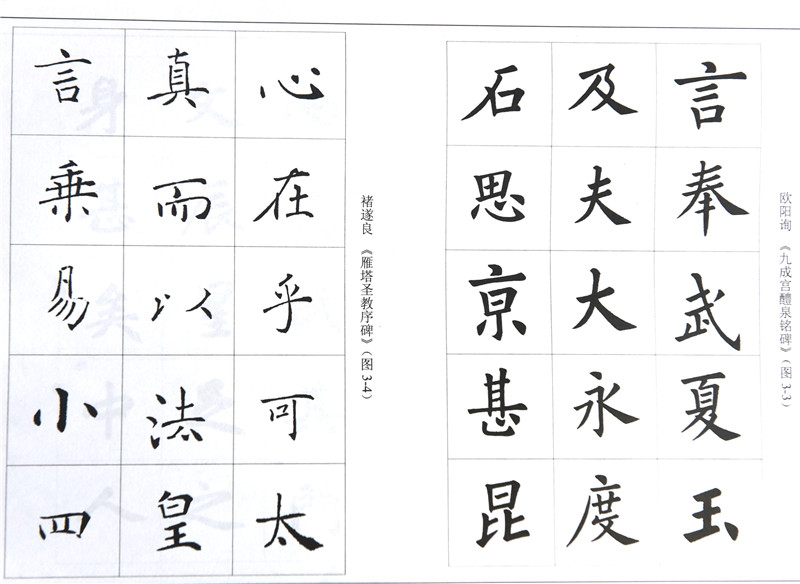 欧阳询 《九成宫醴泉铭碑》(图 3-3)
言奉武夏玉
及夫大永度
石思亰甚昆
褚遂良 《雁塔圣教序碑》(图 3-4)
心在乎可太
真而以法皇
言乗易小四